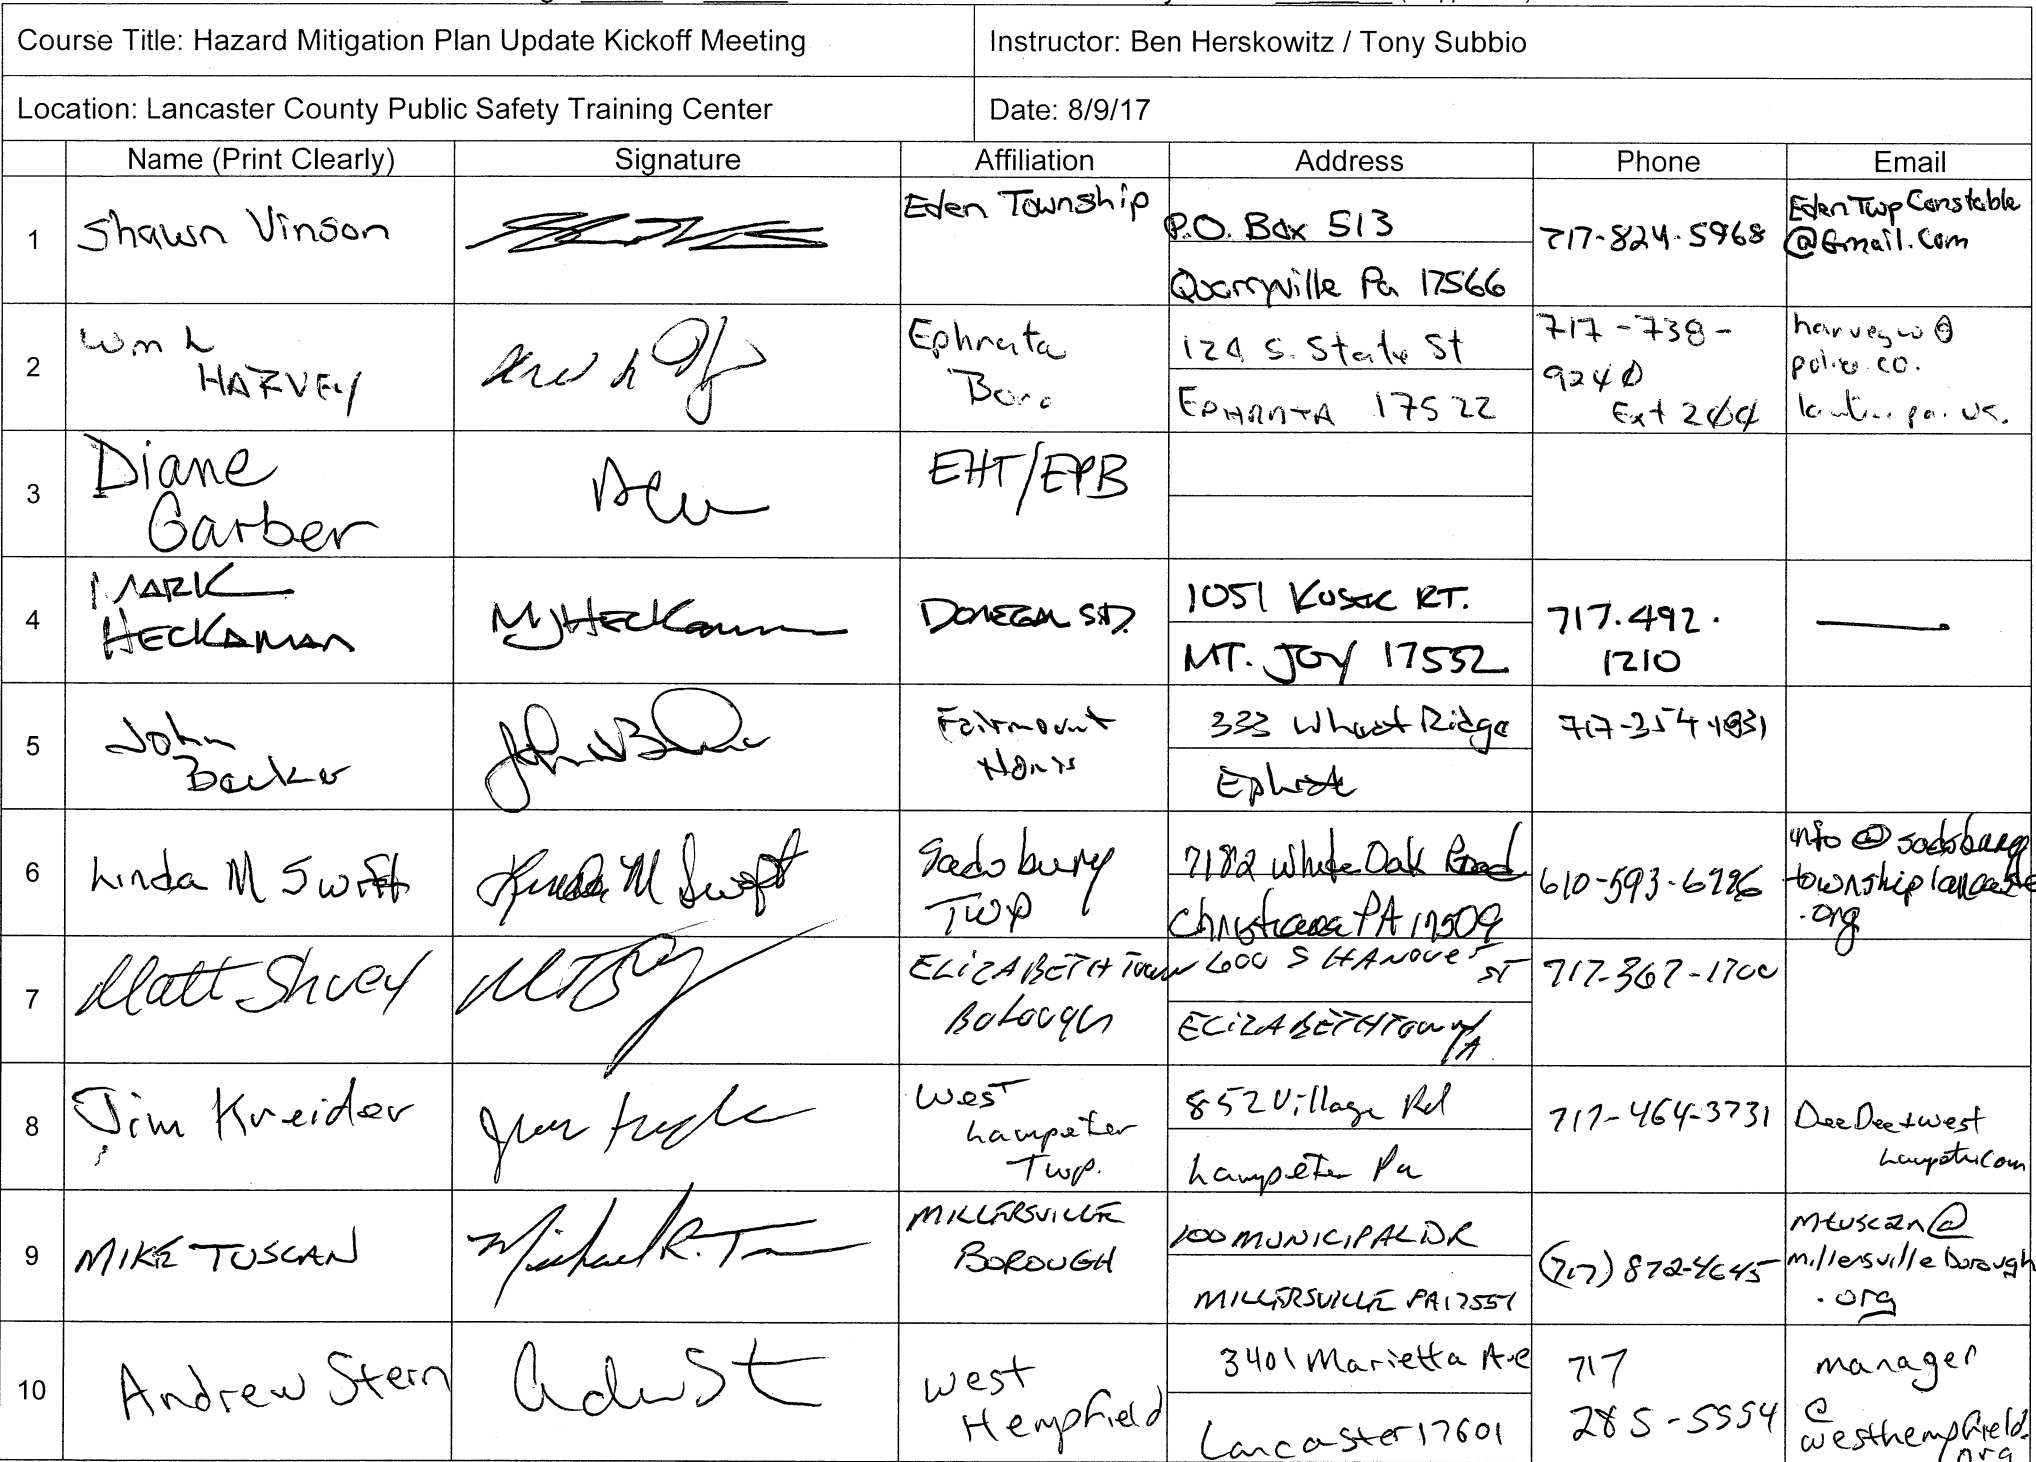 Course Title: Hazard Mitigation Plan Update Kickoff Meeting
Instructor: Ben Herskowitz / Tony Subbio
Location: Lancaster County Public Safety Training Center
Date: 8/9/17
Name (Print Clearly) Signature Affiliation Address Phone Email
1 Shawn Vinson
Eden Township
P.O. Box 513
Quarryville Pa 17566
717-824-5968
EdenTwpConstable
@Gmail.Com
2 Wm L
HARVEY
Ephrata
Boro
124 S. State St
EPHRATA 17522
717-738-
9240
Ext 200
harveyw@
police.co.
pa.us.
3 Diane
Garber
EHT/EPB
4 MARK
HECKAMAN
MJHECKaman
DONEGAL S.D.
1051 RT.
MT. JOY 17552
717.492.
1210
5 John
Fairmount
Homes
333 Wheat Ridge
Ephrata
717-354-1831
6 Linda M Swift
Linda M Swift
Sadsbury
TWP
7182 White Oak Road
Christiana PA 17509
610-593-6796
info@sadsbury
townshiplancaster
.org
7 Matt Shuey
ELIZABETHTOWN
Borough
600 S HANOVER
ST
ELIZABETHTOWN PA
717-367-1700
8 Jim Kreider
West
Lampeter
Twp.
852 Village Rd
Lampeter Pa
717-464-3731
DeeDee@west
lampeter.com
9 MIKE TUSCAN
Michael R. T
MILLERSVILLE
BOROUGH
100 MUNICIPAL DR
MILLERSVILLE PA 17551
(717) 872-4645
mtuscan@
millersvilleborough
.org
10 Andrew Stern
West
Hempfield
3401 Marietta Ave
Lancaster 17601
717
285-5554
manager
@
westhempfield.
org